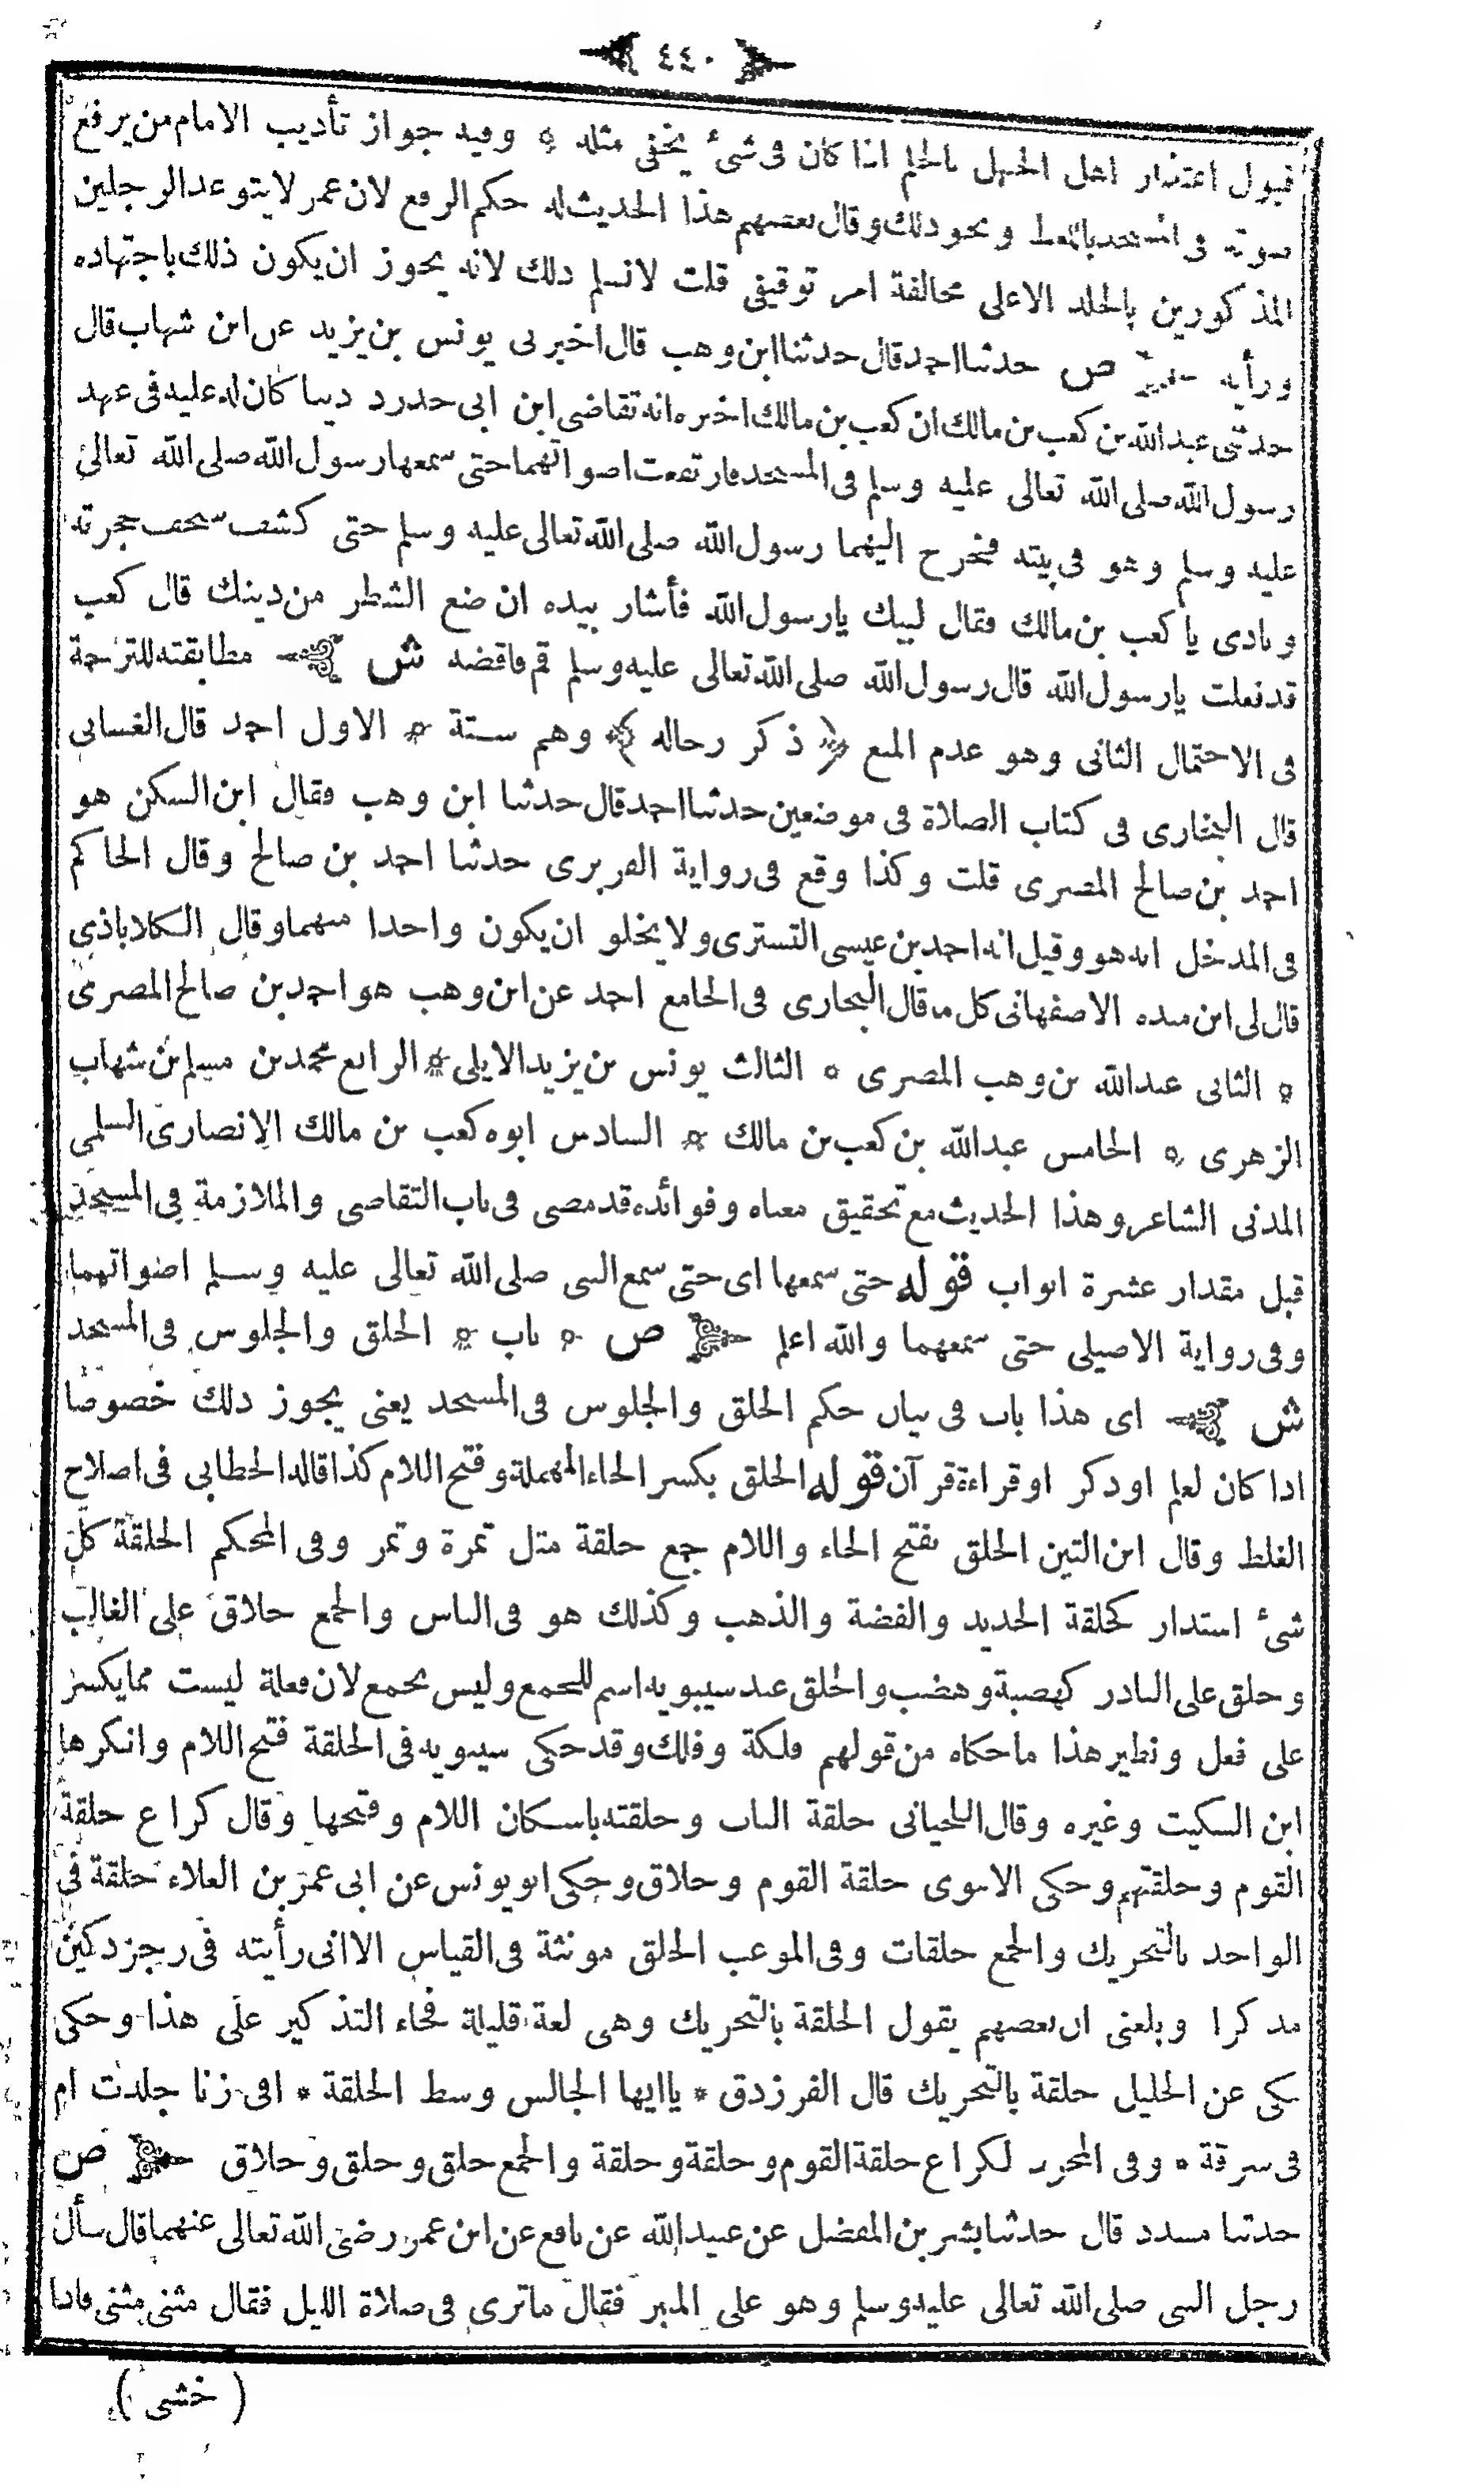 ﴿ ٤٤٠ ﴾
قبول اعتذار اهل الجهل بالحكم اذا كان فى شئ يخفى مثله * وفيه جواز تأديب الامام من يرفع
صوته فى المسجد باللغط ونحو ذلك وقال بعضهم هذا الحديث له حكم الرفع لان عمر لا يتوعد الرجلين
المذكورين بالجلد الا على مخالفة امر توقيفى قلت لانسلم ذلك لانه يجوز ان يكون ذلك باجتهاده
ورأيه ص حدثنا احمد قال حدثنا ابن وهب قال اخبرنى يونس بن يزيد عن ابن شهاب قال
حدثنى عبد الله بن كعب بن مالك ان كعب بن مالك اخبره انه تقاضى ابن ابى حدرد دينا كان له عليه فى عهد
رسول الله صلى الله تعالى عليه وسلم فى المسجد فارتفعت اصواتهما حتى سمعها رسول الله صلى الله تعالى
عليه وسلم وهو فى بيته فخرج اليهما رسول الله صلى الله تعالى عليه وسلم حتى كشف سجف حجرته
ونادى يا كعب بن مالك فقال لبيك يا رسول الله فأشار بيده ان ضع الشطر من دينك قال كعب
قد فعلت يا رسول الله قال رسول الله صلى الله تعالى عليه وسلم قم فاقضه ش مطابقته للترجمة
فى الاحتمال الثانى وهو عدم المنع ﴿ ذكر رجاله ﴾ وهم ستة * الاول احمد قال الغسانى
قال البخارى فى كتاب الصلاة فى موضعين حدثنا احمد قال حدثنا ابن وهب فقال ابن السكن هو
احمد بن صالح المصرى قلت وكذا وقع فى رواية الفربرى حدثنا احمد بن صالح وقال الحاكم
فى المدخل انه هو وقيل انه احمد بن عيسى التسترى ولا يخلو ان يكون واحدا منهما وقال الكلاباذى
قال لى ابن منده الاصفهانى كل ما قال البخارى فى الجامع احمد عن ابن وهب هو احمد بن صالح المصرى
* الثانى عبد الله بن وهب المصرى * الثالث يونس بن يزيد الايلى * الرابع محمد بن مسلم بن شهاب
الزهرى * الخامس عبد الله بن كعب بن مالك * السادس ابوه كعب بن مالك الانصارى السلمى
المدنى الشاعر وهذا الحديث مع تحقيق معناه وفوائده قد مضى فى باب التقاضى والملازمة فى المسجد
قبل مقدار عشرة ابواب قوله حتى سمعها اى حتى سمع النبى صلى الله تعالى عليه وسلم اصواتهما
وفى رواية الاصيلى حتى سمعهما والله اعلم ص * باب * الحلق والجلوس فى المسجد
ش اى هذا باب فى بيان حكم الحلق والجلوس فى المسجد يعنى يجوز ذلك خصوصا
اذا كان لعلم او ذكر او قراءة قرآن قوله الحلق بكسر الحاء المهملة وفتح اللام كذا قاله الخطابى فى اصلاح
الغلط وقال ابن التين الحلق بفتح الحاء واللام جمع حلقة مثل تمرة وتمر وفى المحكم الحلقة كل
شئ استدار كحلقة الحديد والفضة والذهب وكذلك هو فى الناس والجمع حلاق على الغالب
وحلق على النادر كهضبة وهضب والحلق عند سيبويه اسم للجمع وليس بجمع لان فعلة ليست مما يكسر
على فعل ونظير هذا ما حكاه من قولهم فلكة وفلك وقد حكى سيبويه فى الحلقة فتح اللام وانكرها
ابن السكيت وغيره وقال اللحيانى حلقة الباب وحلقته باسكان اللام وفتحها وقال كراع حلقة
القوم وحلقتهم وحكى الاموى حلقة القوم وحلاق وحكى ابو يونس عن ابى عمر بن العلاء حلقة فى
الواحد بالتحريك والجمع حلقات وفى الموعب الحلق مونثة فى القياس الا انى رأيته فى رجز دكين
مذكرا وبلغنى ان بعضهم يقول الحلقة بالتحريك وهى لغة قليلة فجاء التذكير على هذا وحكى
مكى عن الخليل حلقة بالتحريك قال الفرزدق * يا ايها الجالس وسط الحلقة * افى زنا جلدت ام
فى سرقة * وفى المجرد لكراع حلقة القوم وحلقة وحلقة والجمع حلق وحلق وحلاق ص
حدثنا مسدد قال حدثنا بشر بن المفضل عن عبيد الله عن نافع عن ابن عمر رضى الله تعالى عنهما قال سأل
رجل النبى صلى الله تعالى عليه وسلم وهو على المنبر فقال ماترى فى صلاة الليل فقال مثنى مثنى فاذا
( خشى )